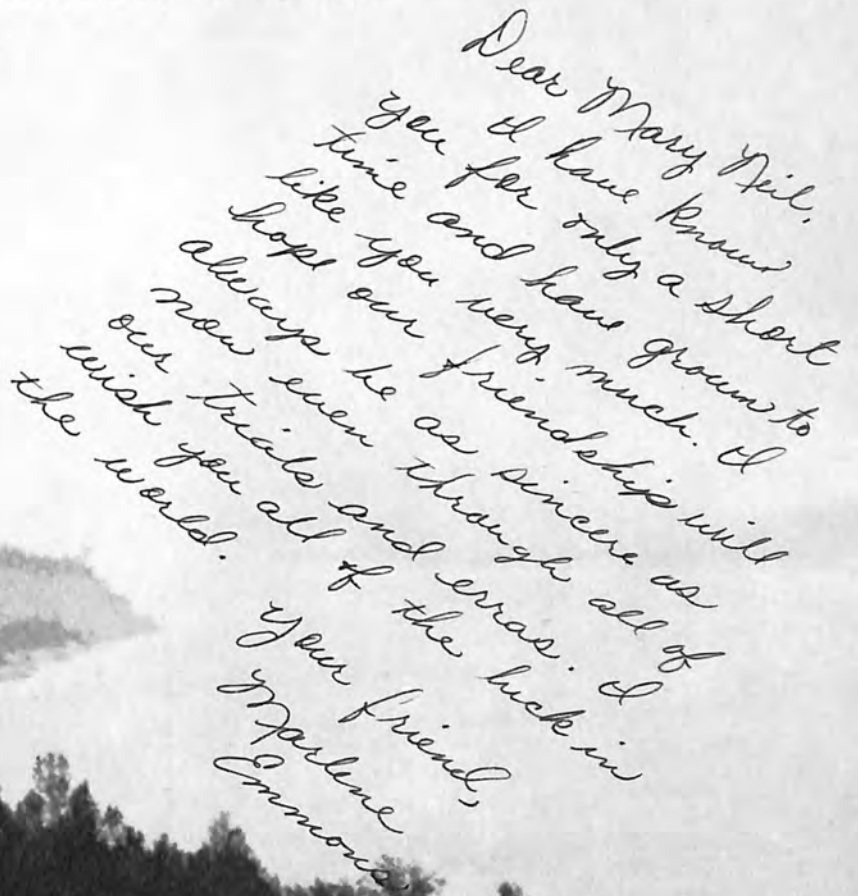 Dear Mary Neil,
I have known
you for only a short
time and have grown to
like you very much. I
hope our friendship will
always be as sincere as
now even through all of
our trials and erras. I
wish you all of the luck in
the world.
Your friend,
Marlene
Emmons